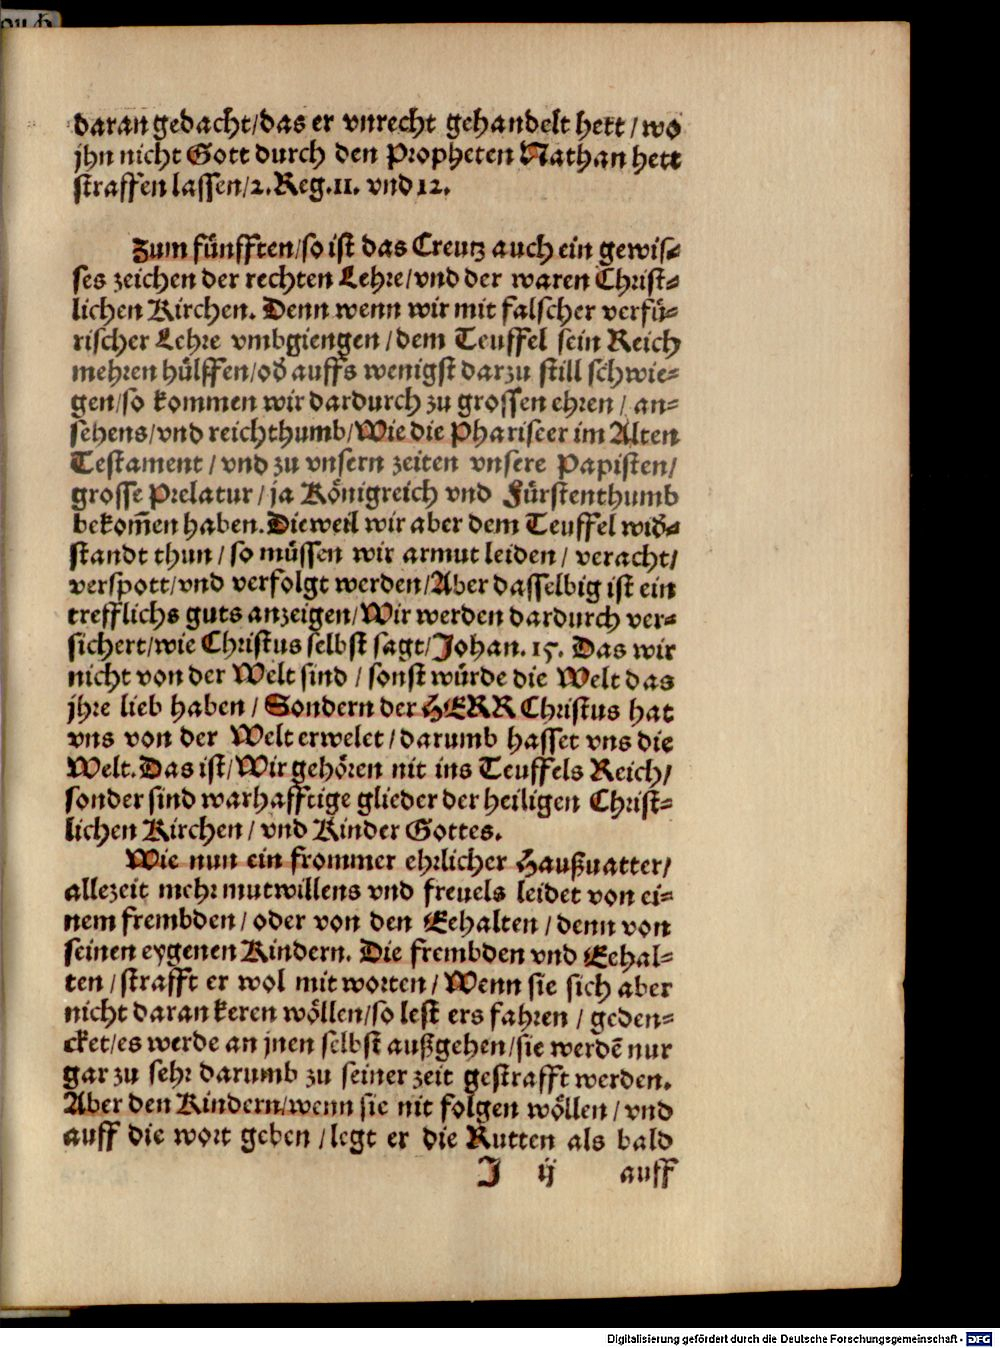 daran gedacht/das er vnrecht gehandelt hett/wo
jhn nicht Gott durch den Propheten Nathan hett
straffen lassen/2.Reg.11. vnd 12.
Zum fünfften/so ist das Creutz auch ein gewis-
ses zeichen der rechten Lehre/vnd der waren Christ-
lichen Kirchen. Denn wenn wir mit falscher verfü-
rischer Lehre vmbgiengen/dem Teuffel sein Reich
mehren hülffen/od̃ auffs wenigst darzu still schwie-
gen/so kommen wir dardurch zu grossen ehren/an-
sehens/vnd reichthumb/Wie die Phariseer im Alten
Testament/vnd zu vnsern zeiten vnsere Papisten/
grosse Prelatur/ja Königreich vnd Fürstenthumb
bekom̃en haben. Dieweil wir aber dem Teuffel wid̃-
standt thun/so müssen wir armut leiden/veracht/
verspott/vnd verfolgt werden/Aber dasselbig ist ein
trefflichs guts anzeigen/Wir werden dardurch ver-
sichert/wie Christus selbst sagt/Johan. 15. Das wir
nicht von der Welt sind/sonst würde die Welt das
jhre lieb haben/Sondern der HERR Christus hat
vns von der Welt erwelet/darumb hasset vns die
Welt. Das ist/Wir gehören nit ins Teuffels Reich/
sonder sind warhafftige glieder der heiligen Christ-
lichen Kirchen/vnd Kinder Gottes.
Wie nun ein frommer ehrlicher Haußuatter/
allezeit mehr mutwillens vnd freuels leidet von ei-
nem frembden/oder von den Eehalten/denn von
seinen eygenen Kindern. Die frembden vnd Eehal-
ten/strafft er wol mit worten/Wenn sie sich aber
nicht daran keren wöllen/so lest ers fahren/geden-
cket/es werde an jnen selbst außgehen/sie werdẽ nur
gar zu sehr darumb zu seiner zeit gestrafft werden.
Aber den Kindern/wenn sie nit folgen wöllen/vnd
auff die wort geben/legt er die Rutten als bald
J ij auff
Digitalisierung gefördert durch die Deutsche Forschungsgemeinschaft - DFG